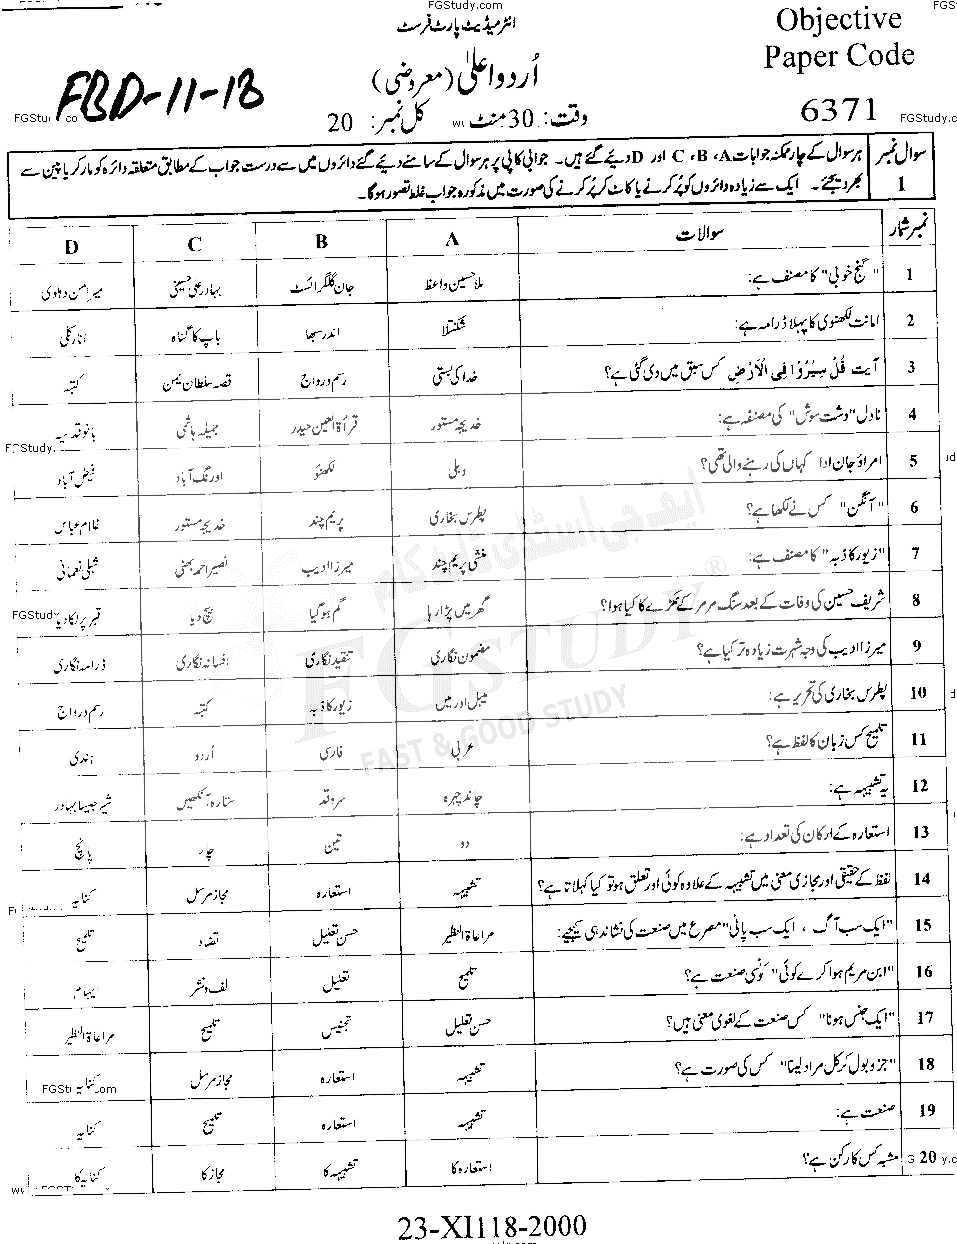 FGStudy.com
FGS
انٹر میڈیٹ پارٹ فرسٹ
Objective
Paper Code
6371
اُردو اعلیٰ (معروضی)
FBD-11-18
وقت: 30 منٹ کل نمبر: 20
سوال نمبر 1
ہر سوال کے چار ممکنہ جوابات A، B، C اور D دیئے گئے ہیں۔ جوابی کاپی پر ہر سوال کے سامنے دیئے گئے دائروں میں سے درست جواب کے مطابق متعلقہ دائرہ کو مارکر یا پین سے
بھر دیجئے۔ ایک سے زیادہ دائروں کو پُر کرنے یا کاٹ کر پُر کرنے کی صورت میں مذکورہ جواب غلط تصور ہوگا۔
نمبر شمار سوالات A B C D
1 "گنج خوبی" کا مصنف ہے: ملا حسین واعظ جان گلگرائسٹ بہادر علی حسینی میر امن دہلوی
2 امانت لکھنوی کا پہلا ڈرامہ ہے: شکنتلا اندر سبھا باپ کا گناہ انار کلی
3 آیت قُلْ سِيْرُوْا فِي الْاَرْضِ کس سبق میں دی گئی ہے؟ خدا کی بستی رسم و رواج قصہ سلطان یمن کتبہ
4 ناول "دشت سوش" کی مصنفہ ہے: خدیجہ مستور قرأۃ العین حیدر جمیلہ ہاشمی بانو قدسیہ
5 امراؤ جان ادا کہاں کی رہنے والی تھی؟ دہلی لکھنؤ اورنگ آباد فیض آباد
6 "آنگن" کس نے لکھا ہے؟ پطرس بخاری پریم چند خدیجہ مستور غلام عباس
7 "زیور کا ڈبہ" کا مصنف ہے: منشی پریم چند میرزا ادیب نصیر احمد بھٹی شبلی نعمانی
8 شریف حسین کی وفات کے بعد سنگ مرمر کے ٹکڑے کا کیا ہوا؟ گھر میں پڑا رہا گم ہو گیا بیچ دیا قبر پر لگا دیا
9 میرزا ادیب کی وجہ شہرت زیادہ تر کیا ہے؟ مضمون نگاری تنقید نگاری افسانہ نگاری ڈرامہ نگاری
10 پطرس بخاری کی تحریر ہے: میبل اور میں زیور کا ڈبہ کتبہ رسم و رواج
11 تلمیح کس زبان کا لفظ ہے؟ عربی فارسی اُردو ہندی
12 یہ تشبیہہ ہے: چاند چہرہ سرو قد ستارہ آنکھیں شیر جیسا بہادر
13 استعارہ کے ارکان کی تعداد ہے: دو تین چار پانچ
14 لفظ کے حقیقی اور مجازی معنی میں تشبیہہ کے علاوہ کوئی اور تعلق ہو تو کیا کہلاتا ہے؟ تشبیہہ استعارہ مجاز مرسل کنایہ
15 "ایک سب آگ ، ایک سب پانی" مصرع میں صنعت کی نشاندہی کیجیے: مراعاۃ النظیر حسن تعلیل تضاد تلمیح
16 "ابن مریم ہوا کرے کوئی" کونسی صنعت ہے؟ تلمیح تعلیل لف و نشر ایہام
17 "ایک جنس ہونا" کس صنعت کے لغوی معنی ہیں؟ حسن تعلیل تجنیس تلمیح مراعاۃ النظیر
18 "جزو بول کر کل مراد لینا" کس کی صورت ہے؟ تشبیہہ استعارہ مجاز مرسل کنایہ
19 صنعت ہے: تشبیہہ استعارہ تلمیح کنایہ
20 مشبہ کس کا رکن ہے؟ استعارہ کا تشبیہہ کا مجاز کا کنایہ کا
ایف جی اسٹڈی ڈاٹ کام
FGSTUDY®
FAST & GOOD STUDY
23-XI118-2000